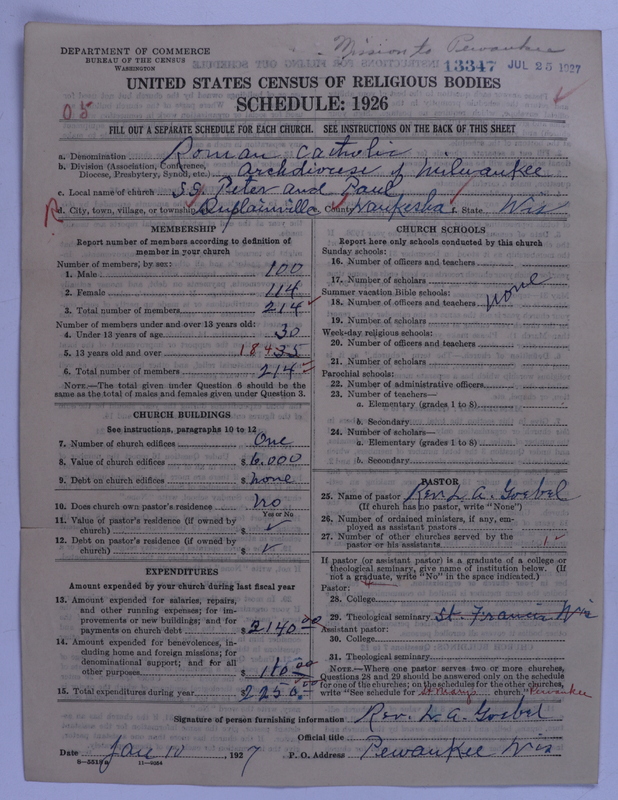 Mission to Pewaukee
DEPARTMENT OF COMMERCE
BUREAU OF THE CENSUS
WASHINGTON
13347 JUL 25 1927
UNITED STATES CENSUS OF RELIGIOUS BODIES
SCHEDULE: 1926
05
FILL OUT A SEPARATE SCHEDULE FOR EACH CHURCH. SEE INSTRUCTIONS ON THE BACK OF THIS SHEET
a. Denomination Roman Catholic
b. Division (Association, Conference, Diocese, Presbytery, Synod, etc.) Archdiocese of Milwaukee
c. Local name of church SS. Peter and Paul
R d. City, town, village, or township Duplainville e. County Waukesha f. State Wis
MEMBERSHIP
Report number of members according to definition of member in your church
Number of members, by sex:
1. Male 100
2. Female 114
3. Total number of members 214
Number of members under and over 13 years old:
4. Under 13 years of age 30
5. 13 years old and over 184
6. Total number of members 214
NOTE.—The total given under Question 6 should be the same as the total of males and females given under Question 3.
CHURCH BUILDINGS
See instructions, paragraphs 10 to 12
7. Number of church edifices One
8. Value of church edifices $ 6.000
9. Debt on church edifices $ none
10. Does church own pastor's residence no
Yes or No
11. Value of pastor's residence (if owned by church) $ ✓
12. Debt on pastor's residence (if owned by church) $ ✓
EXPENDITURES
Amount expended by your church during last fiscal year
13. Amount expended for salaries, repairs, and other running expenses; for improvements or new buildings; and for payments on church debt $ 2140.00
14. Amount expended for benevolences, including home and foreign missions; for denominational support; and for all other purposes $ 110.00
15. Total expenditures during year $ 2250.00
CHURCH SCHOOLS
Report here only schools conducted by this church
Sunday schools:
16. Number of officers and teachers
17. Number of scholars
Summer vacation Bible schools:
18. Number of officers and teachers none
19. Number of scholars
Week-day religious schools:
20. Number of officers and teachers
21. Number of scholars
Parochial schools:
22. Number of administrative officers
23. Number of teachers—
a. Elementary (grades 1 to 8)
b. Secondary
24. Number of scholars—
a. Elementary (grades 1 to 8)
b. Secondary
PASTOR
25. Name of pastor Rev. L. A. Goebel
(If church has no pastor, write "None")
26. Number of ordained ministers, if any, employed as assistant pastors
27. Number of other churches served by the pastor or his assistants 1
If pastor (or assistant pastor) is a graduate of a college or theological seminary, give name of institution below. (If not a graduate, write "No" in the space indicated.)
Pastor:
28. College
29. Theological seminary St. Francis Wis
Assistant pastor:
30. College
31. Theological seminary
NOTE.—Where one pastor serves two or more churches, Questions 28 and 29 should be answered only on the schedule for one of the churches; on the schedules for the other churches, write "See schedule for St Marys church" Pewaukee
Signature of person furnishing information Rev. L. A. Goebel
Official title
Date Jan 10, 1927 P. O. Address Pewaukee Wis
8—5518a 11—9064